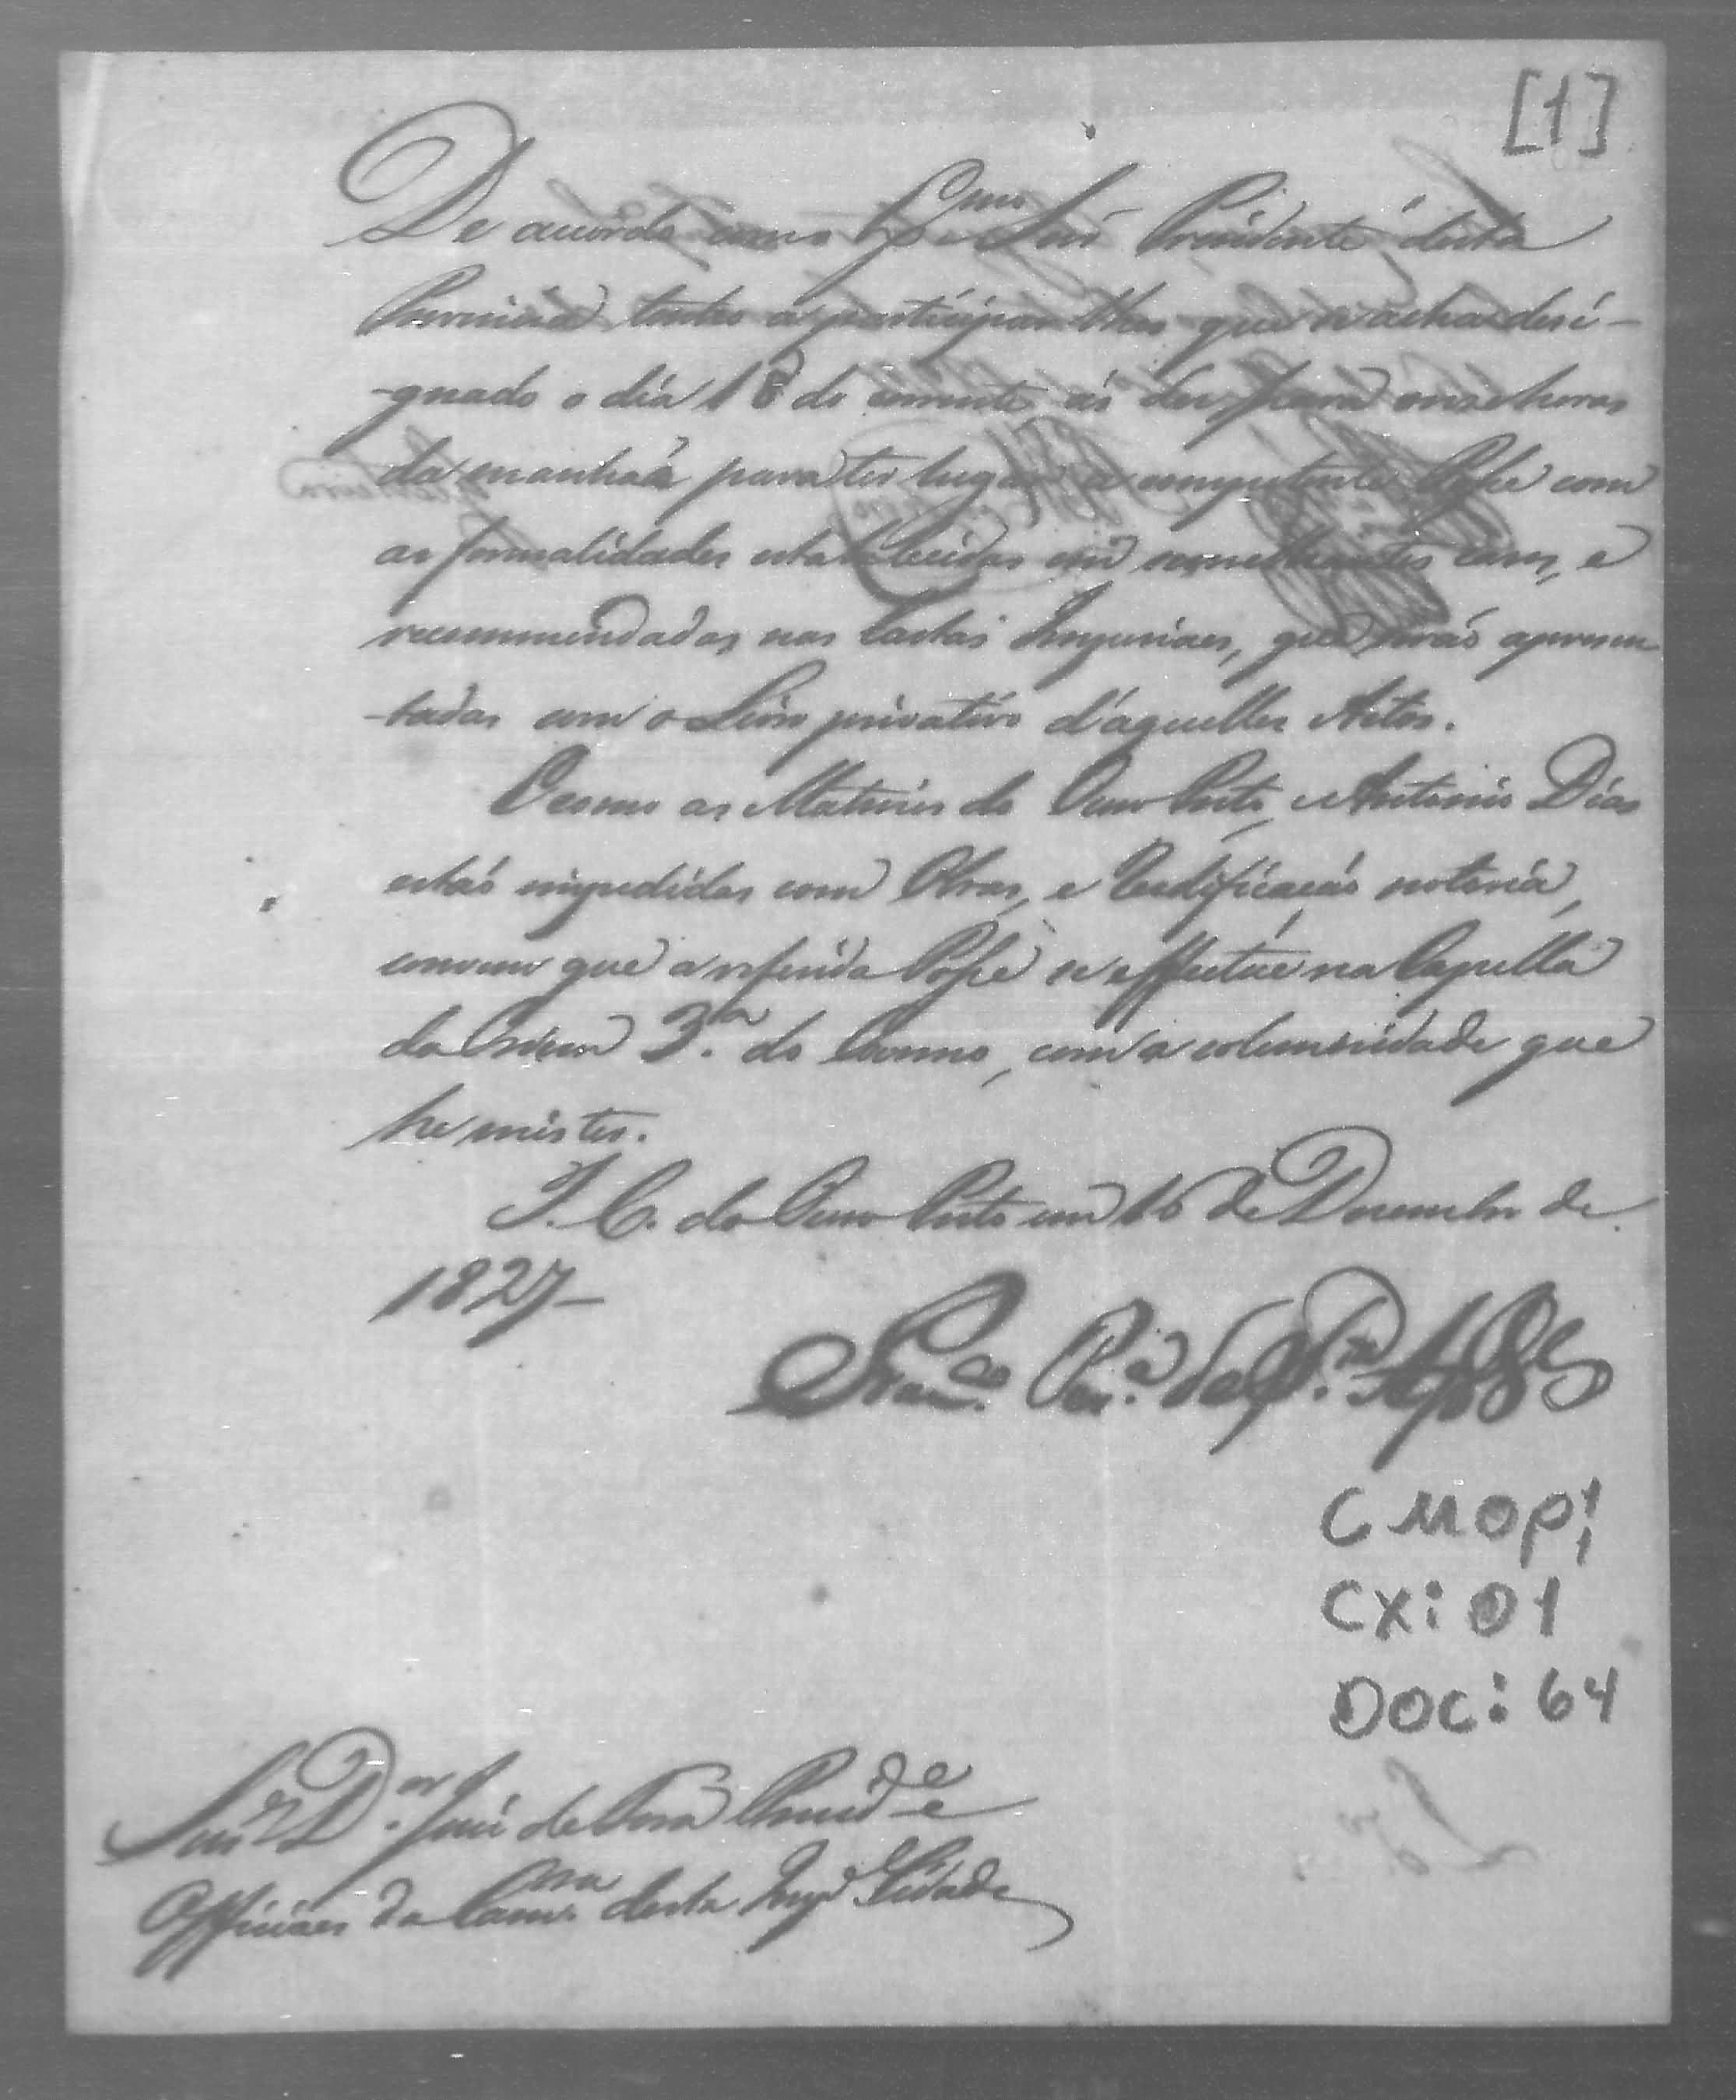 [1]
De acordo com o Exmo Snr Presidente desta
Provincia tenho a participar lhes que se acha desi-
-gnado o dia 18 do corrente ás dez para onze horas
da manhaã para ter lugar a competente Posse com
as formalidades estabelecidas em semelhantes casos, e
recommendadas nas Cartas Imperiaes, que seraõ apresen-
-tadas com o Livro privativo d'aquelles Actos.
E como as Matrizes do Ouro Preto, e Antonio Dias
estaõ impedidas com Obras, e Reedificaçaõ notoria,
convem que a referida Posse se effectue na Capella
da Ordem 3.ª do Carmo, com a solemnidade que
he mister.
I. C. do Ouro Preto em 16 de Dezembro de
1827-
Franco. Pera. de
CMOP:
CX: 01
DOC: 64
Snr Dor. José de Presid.e e
Officiaes da Camra. desta Impl. Cidade